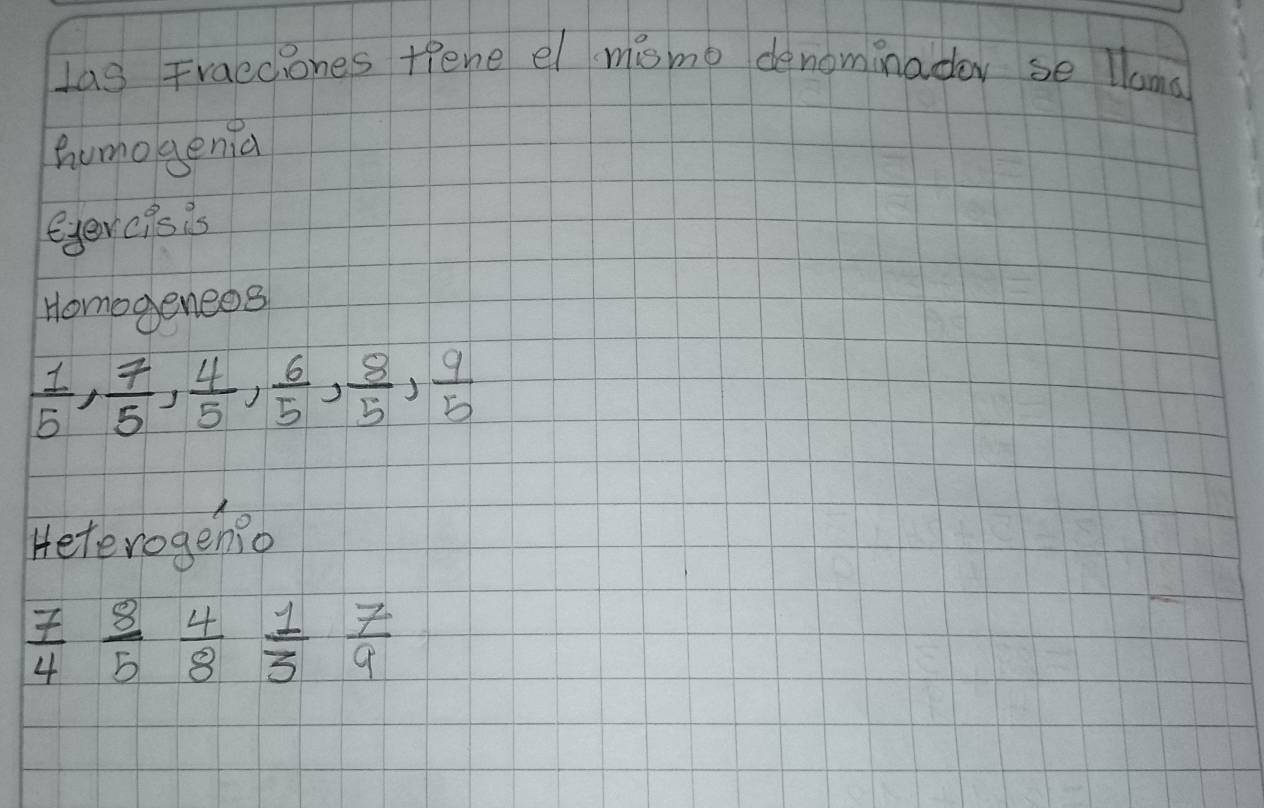 las Fracciones tiene el mismo denominador se llama
humogenia
Ejercisis
Homogeneos
1/5, 7/5, 4/5, 6/5, 8/5, 9/5
Heterogénio
7/4 8/5 4/8 1/3 7/9